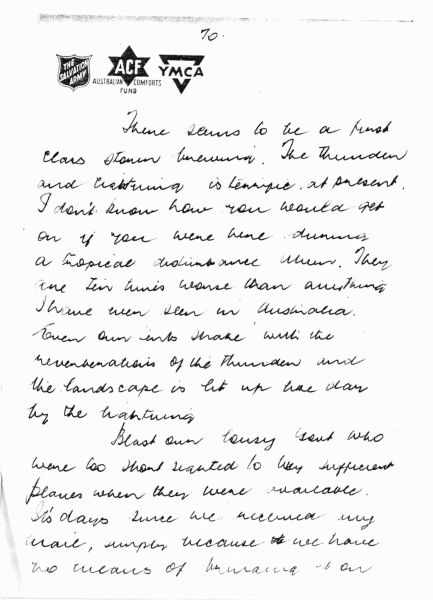 70.
THE SALVATION ARMY
ACF
AUSTRALIAN COMFORTS FUND
YMCA
There seems to be a first
class storm brewing. The thunder
and lightning is terrific at present.
I don't know how you would get
on if you were here during
a tropical disturbance Mum. They
are ten times worse than anything
I have ever seen in Australia.
Even our tents shake with the
reverberations of the thunder and
the landscape is lit up like day
by the lightning
Blast our lousy Govt who
were too short sighted to buy sufficient
planes when they were available.
It's days since we received any
mail, simply because we have
no means of bringing it on